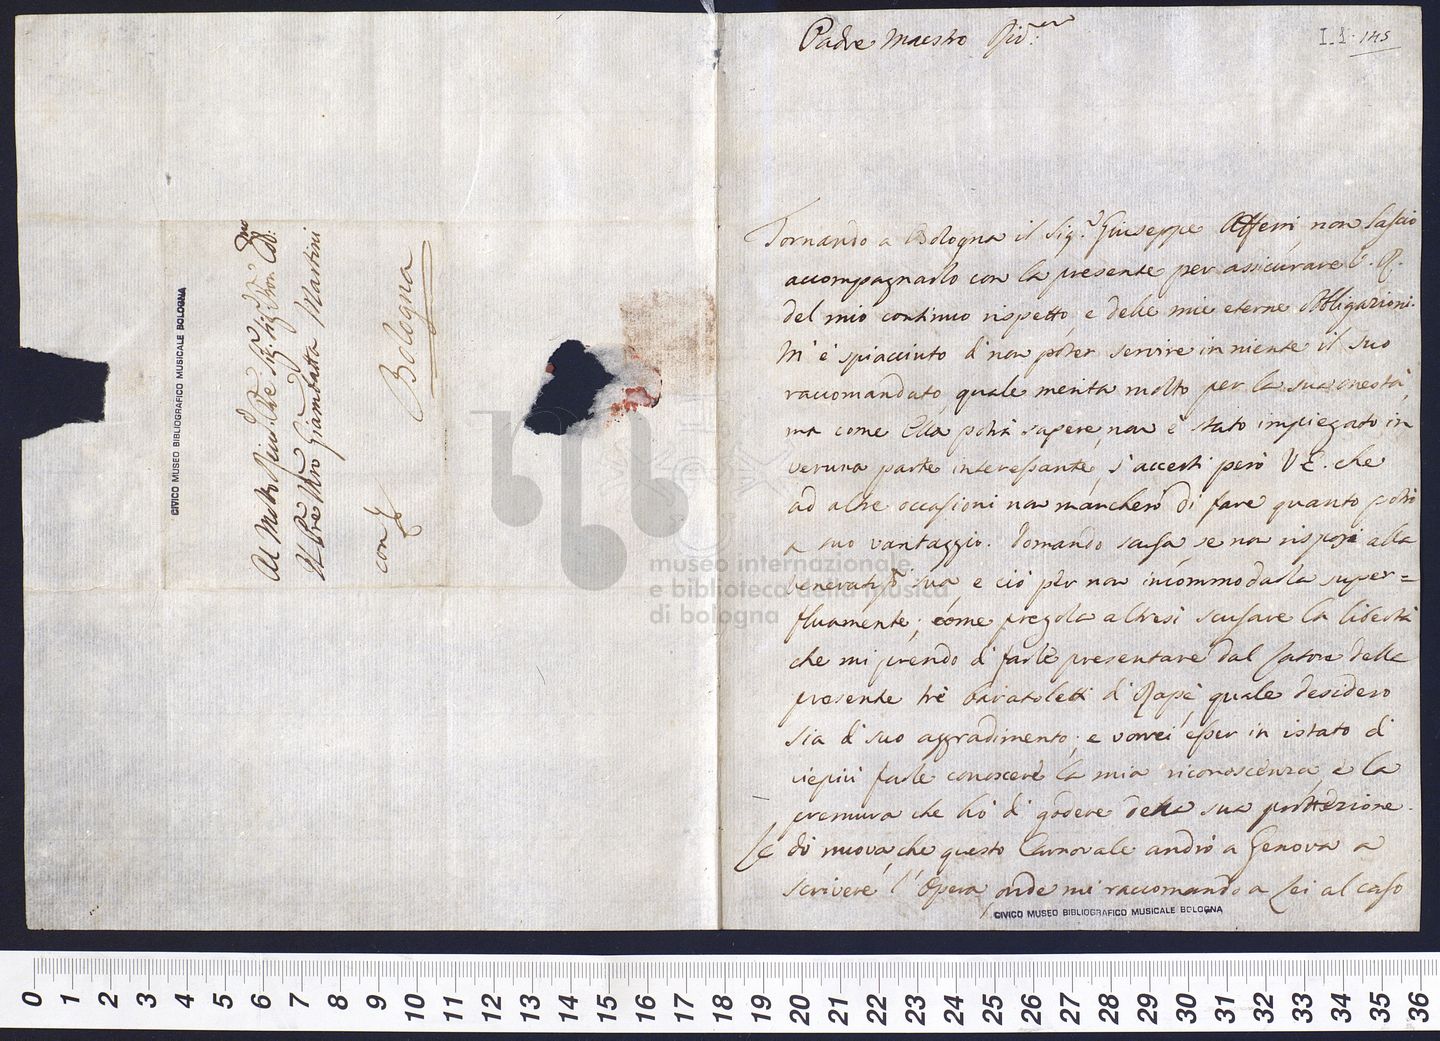 Al Molto Rev:do P̃re Sig: Sig: Pron Col:mo
Il P̃re Mro Giambatta Martini
con
Bologna
CIVICO MUSEO BIBLIOGRAFICO MUSICALE BOLOGNA
Padre Maestro
I.1.145
Tornando a Bologna il Sig.r Giuseppe Afferri, non lascio
accompagnarlo con la presente per assicurare V. R.
del mio continuo rispetto, e delle mie eterne Obbligazioni.
M'è spiacciuto di non poter servire in niente il suo
raccomandato, quale merita molto per la sua onestà,
ma come Ella potrà sapere, non è stato impiegato in
veruna parte interessante, s'accerti però V. R. che
ad altre occasioni non mancherò di fare quanto potrò
a suo vantaggio. Domando scusa se non risposi alla
veneratiss.a sua, e ciò per non incommodarla super=
fluamente; come pregola altresì scusare la libertà
che mi prendo di farle presentare dal Latore della
presente trè baratoletti di Rapè, quale desidero
sia di suo aggradimento; e vorrei esser in istato di
viepiù farle conoscere la mia riconoscenza, e la
premura che hò di godere della sua prottezione.
Le dò nuova, che questo Carnovale andrò a Genova a
scrivere l'Opera, onde mi raccomando a Lei al caso
CIVICO MUSEO BIBLIOGRAFICO MUSICALE BOLOGNA
museo internazionale
e biblioteca della musica
di bologna
0 1 2 3 4 5 6 7 8 9 10 11 12 13 14 15 16 17 18 19 20 21 22 23 24 25 26 27 28 29 30 31 32 33 34 35 36